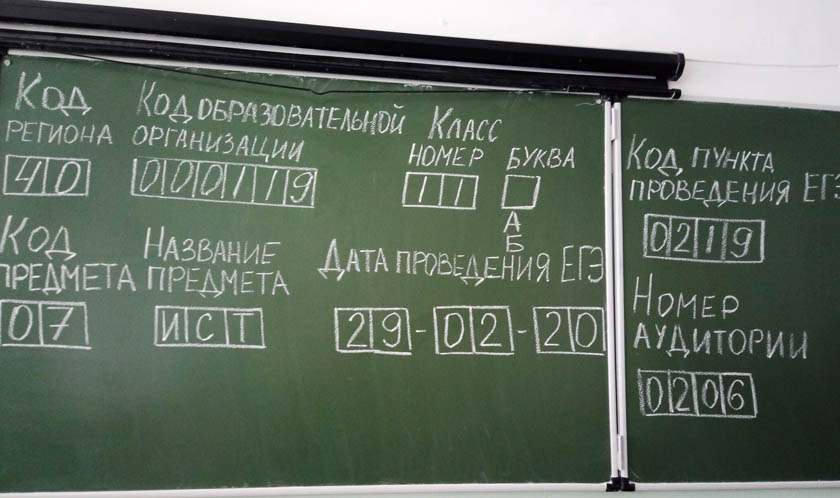 Код
региона
40
Код образовательной
организации
000119
Класс
номер
11
буква
А
Б
Код
предмета
07
Название
предмета
ИСТ
Дата проведения ЕГЭ
29-02-20
Код пункта
проведения ЕГЭ
0219
Номер
аудитории
0206